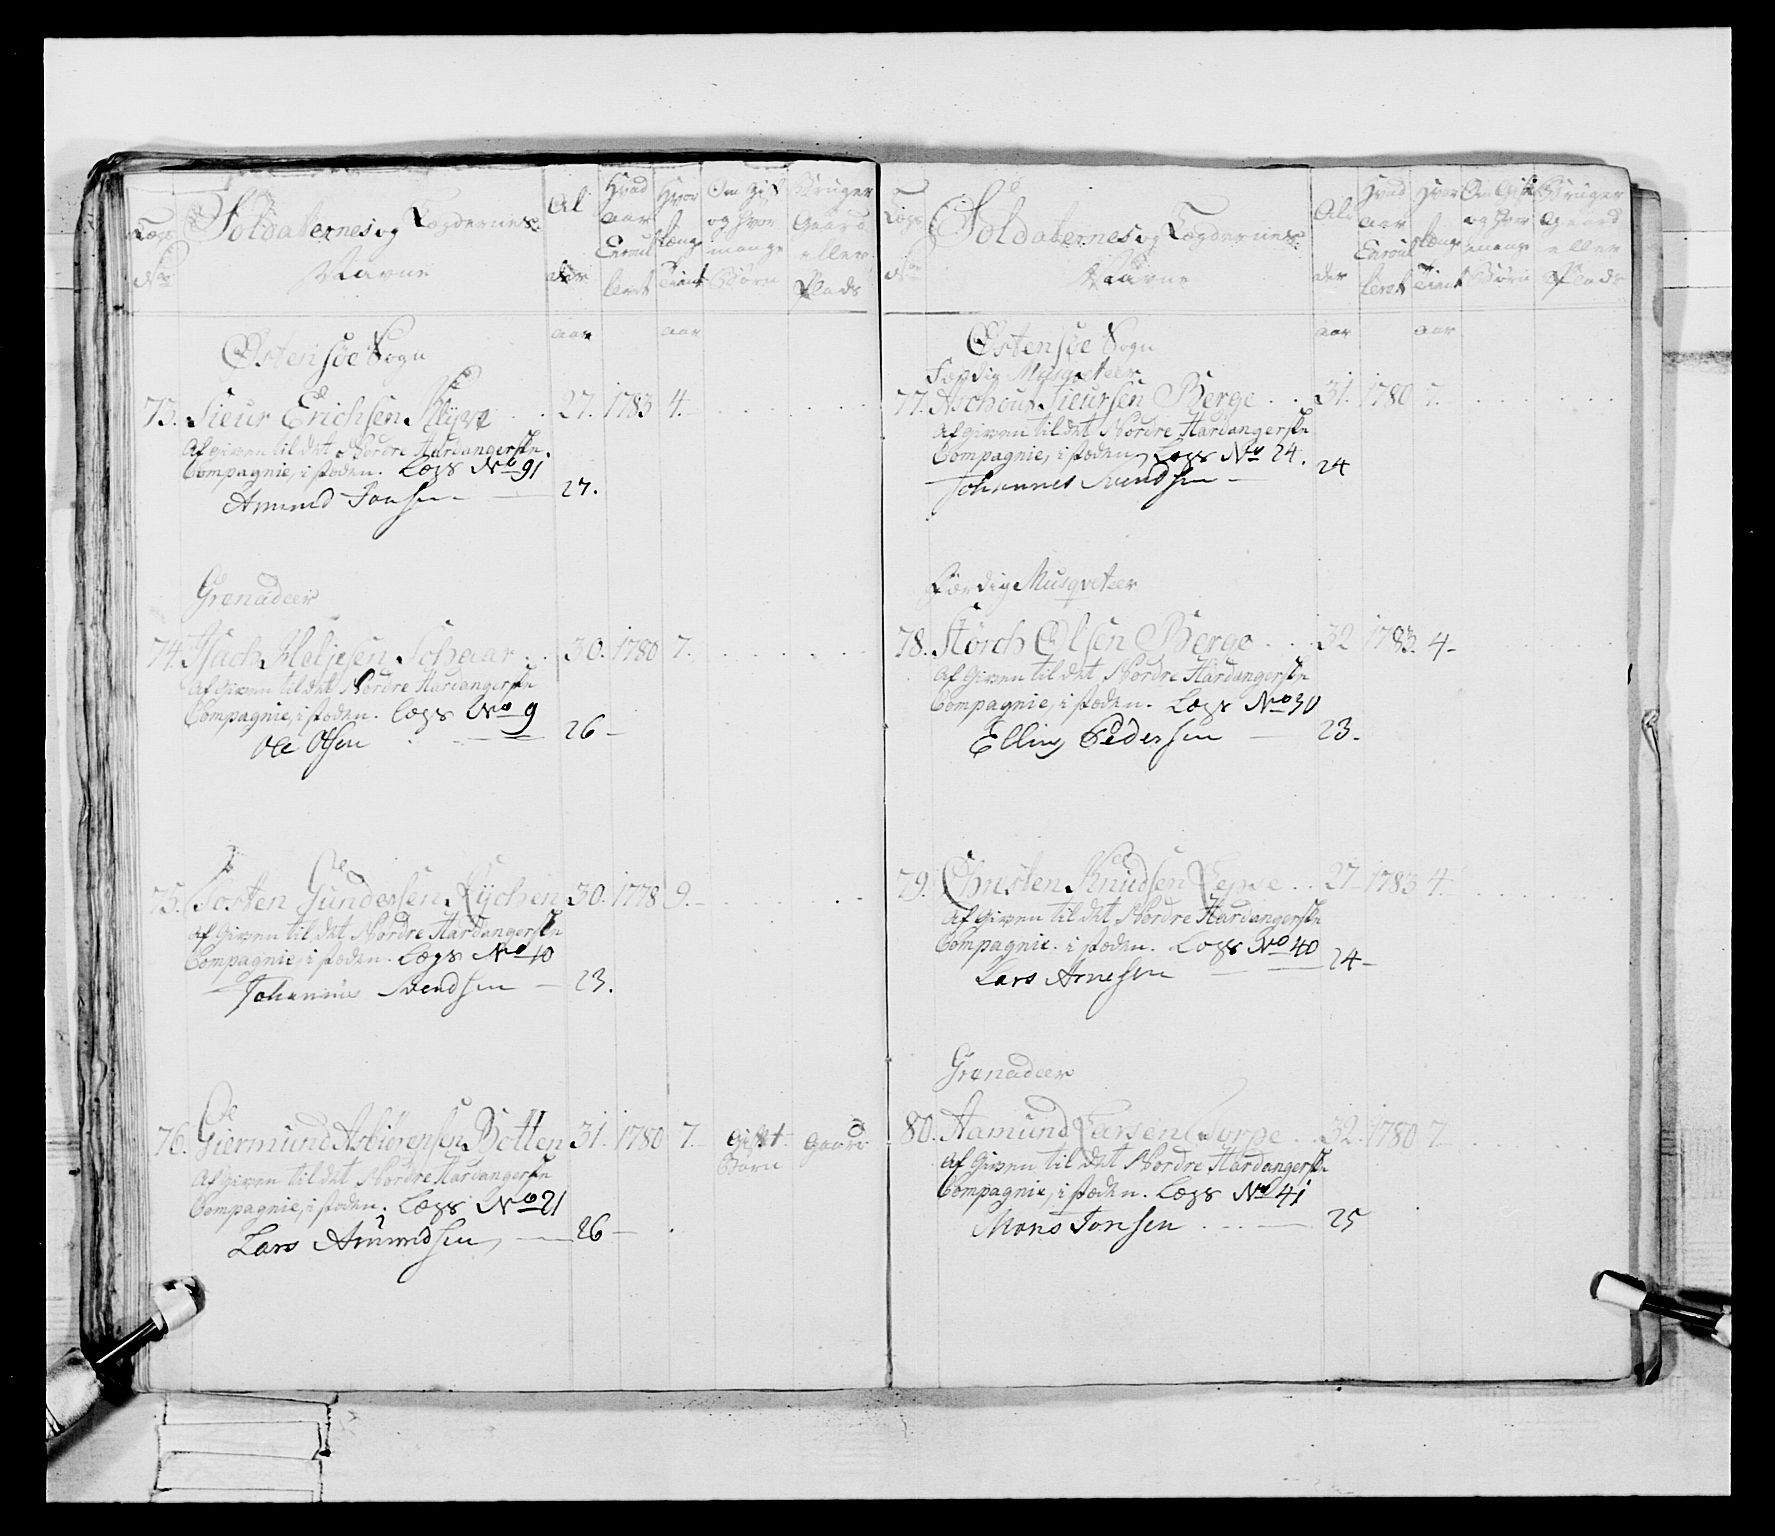 Lægs No
Soldaternes og Lægdernes Navne
Al der
Hvad aar Enroul leret
Hvor længe Tient
Om Gift og Hvor mange Børn
Bruger Gaard eller Plads
aar
aar
Østensøe Sogn
73. Sieur Erichsen Klyve . 27. 1783 4.
Af given til det Nordre Hardangerske
Compagnie, i stæden. Lægs No 91
Amund Jonsen 27.
Grenadeer
74. Isach Heljesen Schaar . . 30. 1780 7.
Af Given til det Nordre Hardangerske
Compagnie, i stæden. Lægs No 9
Ole Olsen 26
75. Tosten Gundersen Rÿchen 30. 1778 9.
Af Given til det Nordre Hardangerske
Compagnie, i stæden. Lægs No 10
Johannes Svendsen 23.
76. Giermund Asbiörensen Botten 31. 1780 7. Gift Gaard
Børn
Af Given til det Nordre Hardangerske
Compagnie, i stæden. Lægs No 21
Lars Amundsen 26
Lægs No
Soldaternes og Lægdernes Navne
Al der
Hvad aar Enroul leret
Hvor længe Tient
Om Gift og Hvor mange Børn
Bruger Gaard eller Plads
aar
aar
Østensøe Sogn
Færdig Musqveteer
77. Aschour Sieursen Berge . . 31. 1780 7.
Af Given til det Nordre Hardangerske
Compagnie, i stæden, Lægs No 24.
Johannes Svendsen 24
Færdig Musqveteer
78. Störch Olsen Berge . . . 32 1783. 4
Af Given til det Nordre Hardangerske
Compagnie, i stæden. Lægs No 30
Elling Pedersen 23.
79. Christen Knudsen Lepse . . 27 1783 4.
Af Given til det Nordre Hardangerske
Compagnie. i stæden. Lægs No 40
Lars Arnesen 24
Grenadeer
80. Aamund Larsen Torpe . . 32. 1780 7.
Af Given til det Nordre Hardangerske
Compagnie, i stæden. Lægs No 41
Mons Tonsen 25